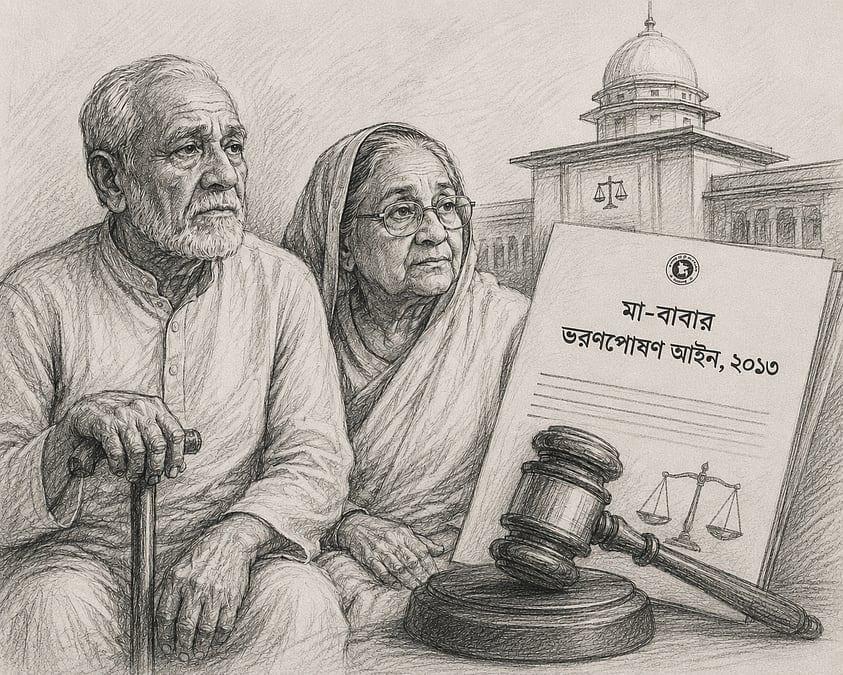 মা-বাবার
ভরণপোষণ আইন, ২০১৩